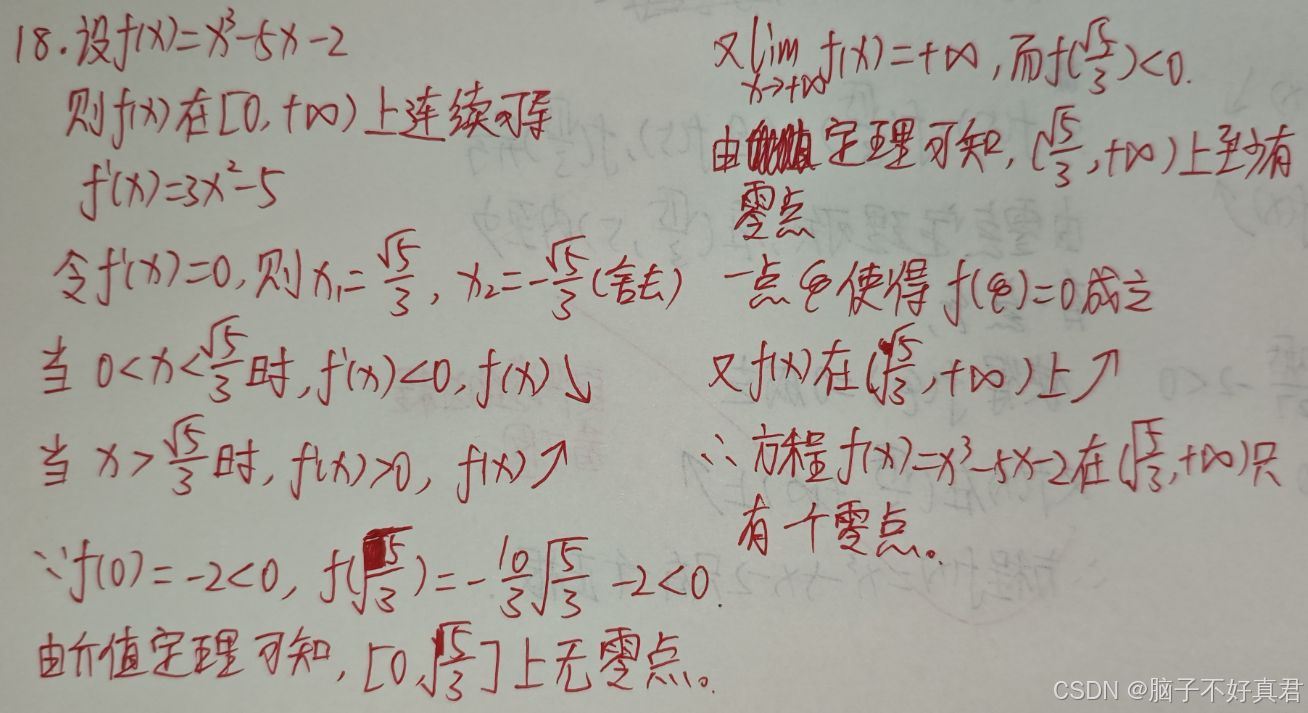 18.设f(x)=x³-5x-2
则f(x)在[0,+∞)上连续可导
f'(x)=3x²-5
令f'(x)=0,则x₁=√5/3, x₂=-√5/3(舍去)
当 0<x<√5/3时,f'(x)<0,f(x)↘
当 x>√5/3时,f'(x)>0, f(x)↗
∵f(0)=-2<0, f(√5/3)=-10/3√5/3-2<0.
由介值定理可知,[0,√5/3]上无零点。
又lim x→+∞ f(x)=+∞,而f(√5/3)<0.
由零点定理可知,(√5/3,+∞)上至少有
一点ξ使得f(ξ)=0成立
又f(x)在(√5/3,+∞)上↗
∴方程f(x)=x³-5x-2在(√5/3,+∞)只
有一个零点。
CSDN @脑子不好真君